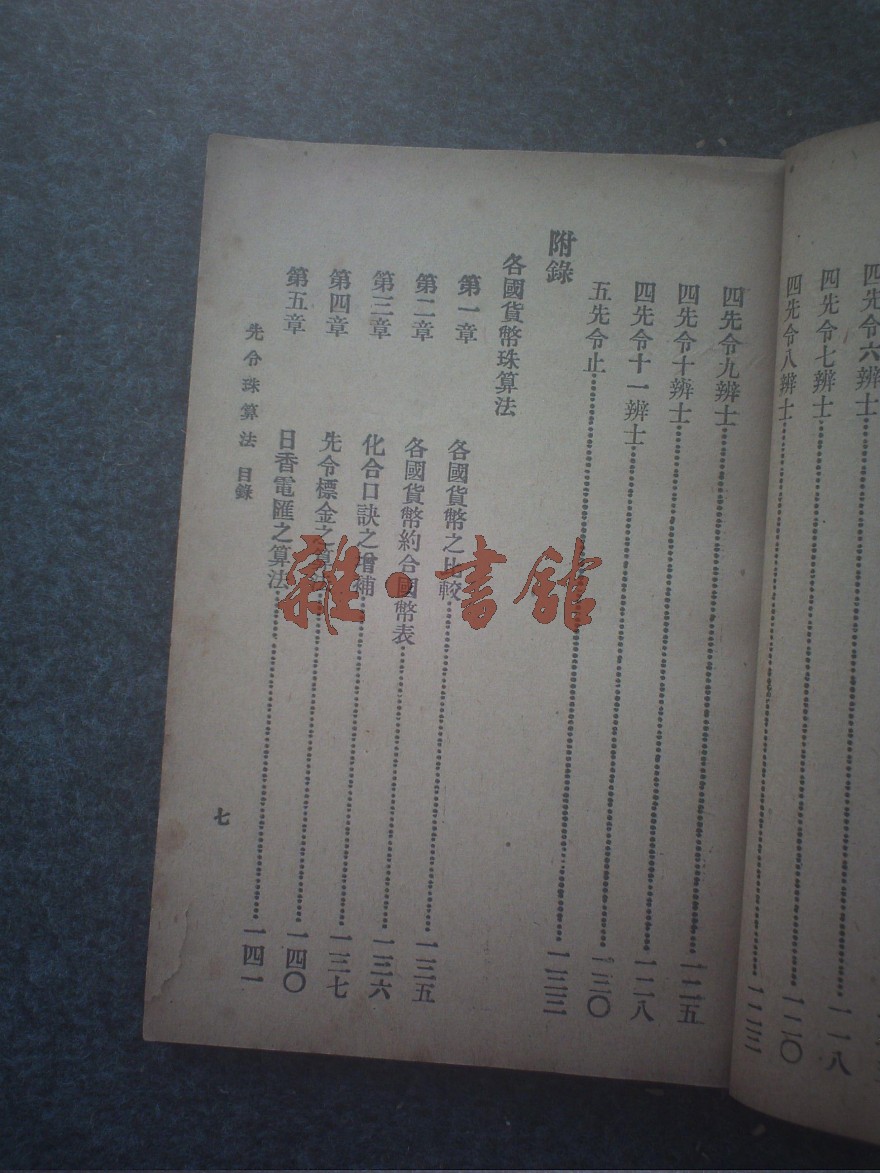 四先令六辨士……一一八
四先令七辨士……一二〇
四先令八辨士……一二三
四先令九辨士……一二五
四先令十辨士……一二八
四先令十一辨士……一三〇
五先令止……一三三
附錄
各國貨幣珠算法
第一章 各國貨幣之比較……一三五
第二章 各國貨幣約合國幣表……一三六
第三章 化合口訣之增補……一三七
第四章 先令標金之算法……一四〇
第五章 日香電匯之算法……一四一
先令珠算法 目錄
七
雜·書館